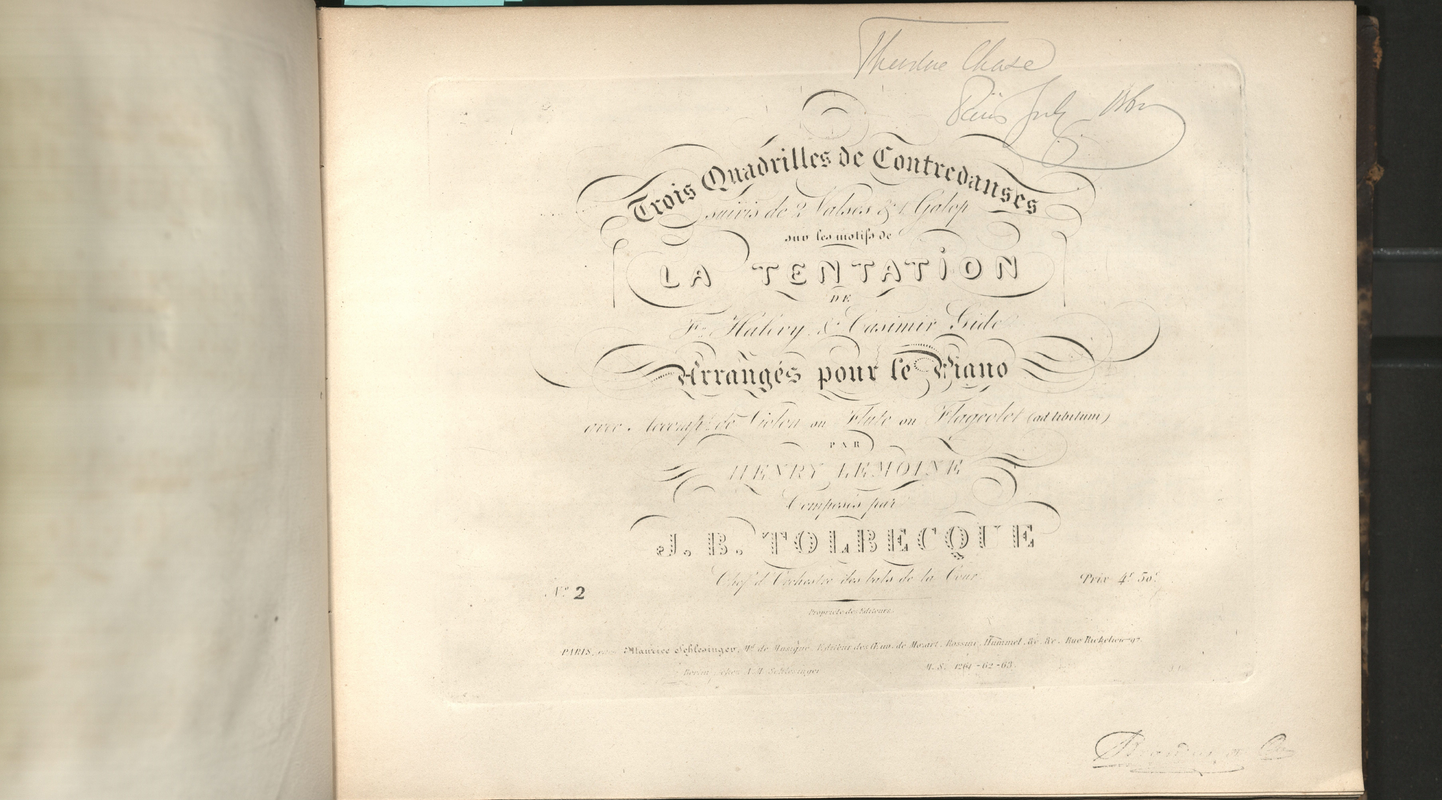 Theodore Chase
Paris July
Trois Quadrilles de Contredanses
suivis de 2 Valses & 1 Galop
sur les motifs de
LA TENTATION
DE
F. Halevy & Casimir Gide
Arrangés pour le Piano
avec Accompt. de Violon ou Flute ou Flageolet (ad libitum)
PAR
HENRY LEMOINE
Composés par
J. B. TOLBECQUE
Chef d'Orchestre des bals de la Cour
No. 2
Prix 4f 50c
Propriété des Editeurs.
PARIS, chez Maurice Schlesinger, Md. de Musique, Editeur des Œuv. de Mozart, Rossini, Hummel, &c. &c. Rue Richelieu 97
Berlin, chez A. M. Schlesinger
M. S. 1261-62-63.